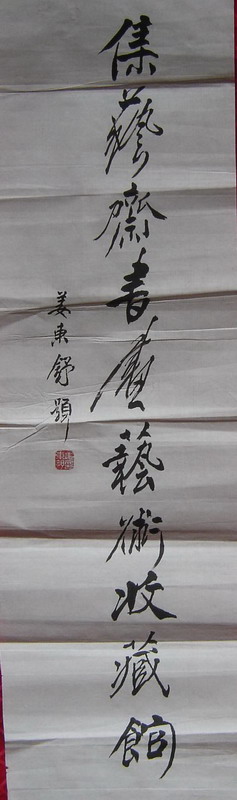 集藝齋書畫藝術收藏館
姜東舒題